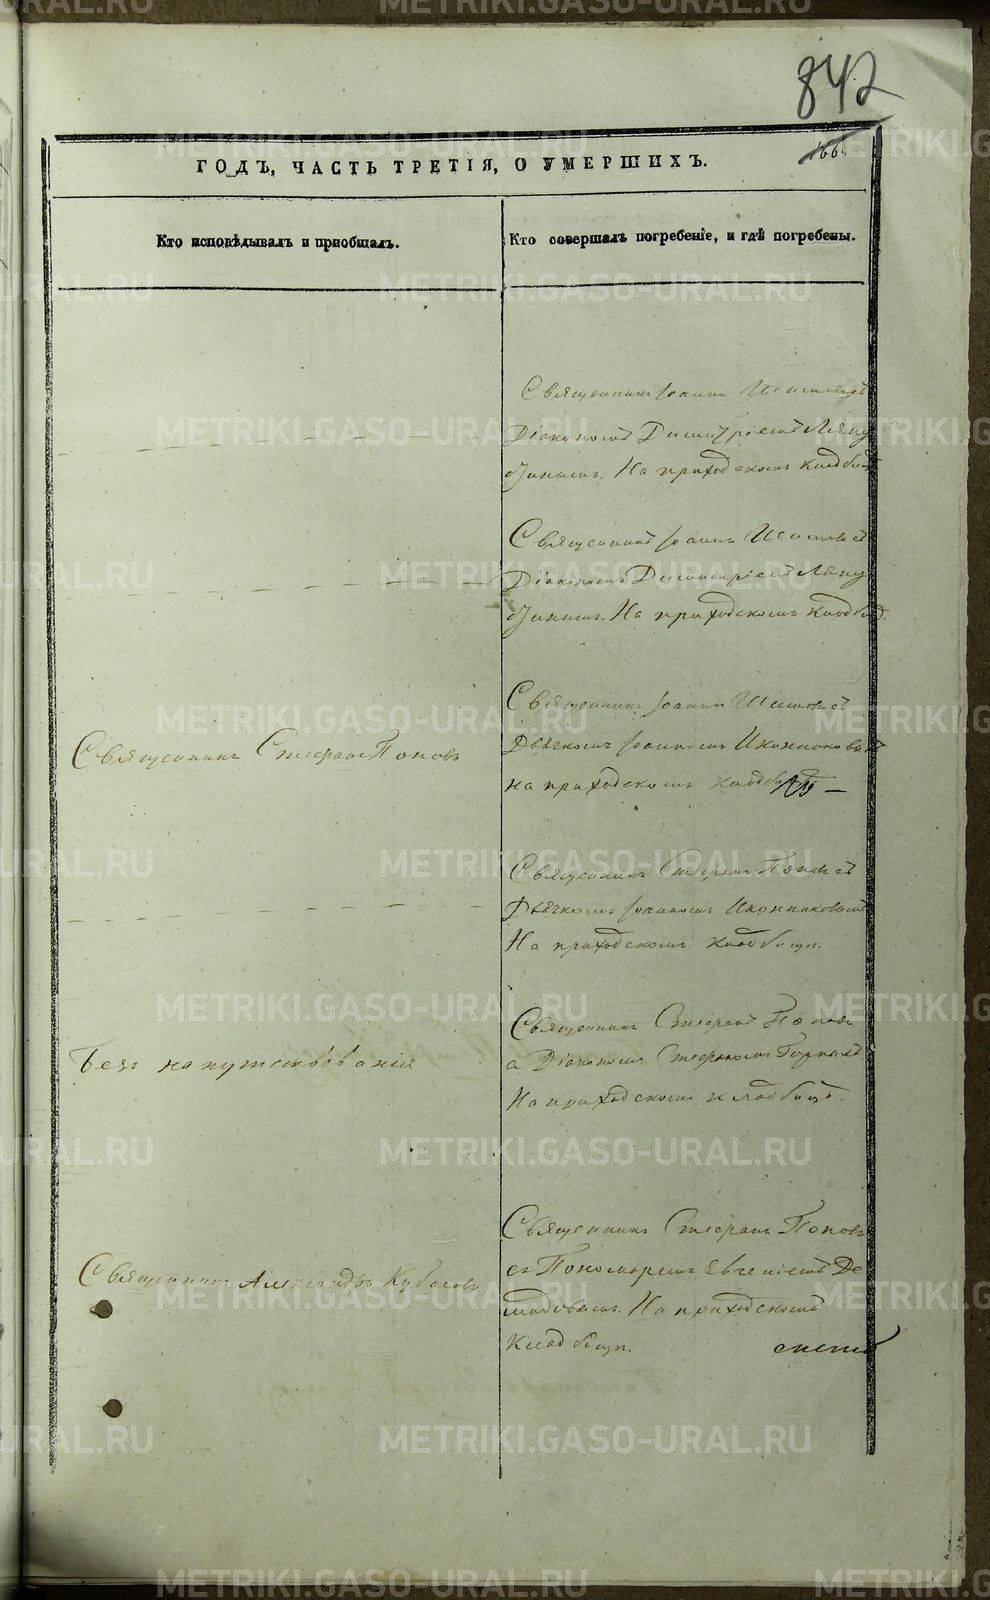 842
166
ГОДЪ, ЧАСТЬ ТРЕТІЯ, О УМЕРШИХЪ.
Кто исповѣдывалъ и пріобщалъ.
Кто совершалъ погребеніе, и гдѣ погребены.
Священникъ Іоаннъ
Діакономъ Димитріемъ Ляпу
стинымъ. На приходскомъ кладбищ
Священникъ Іоаннъ
Діакономъ Димитріемъ Ляпу
стинымъ. На приходскомъ кладбищ.
Священникъ Стефанъ Поповъ
Священникъ Іоаннъ
Дьячкомъ Іоанномъ Иконниковымъ
на приходскомъ кладбищѣ
Священникъ Стефанъ Поповъ съ
Дьячкомъ Іоанномъ Иконниковымъ
На приходскомъ кладбищѣ.
Безъ напутствованія
Священникъ Стефанъ Поповъ
Діакономъ Стефаномъ
На приходскомъ кладбищѣ.
Священникъ Александръ Кубасовъ
Священникъ Стефанъ Поповъ
съ Пономаремъ Евгеніемъ Де
мидовымъ. На приходскомъ
кладбищѣ.
METRIKI.GASO-URAL.RU